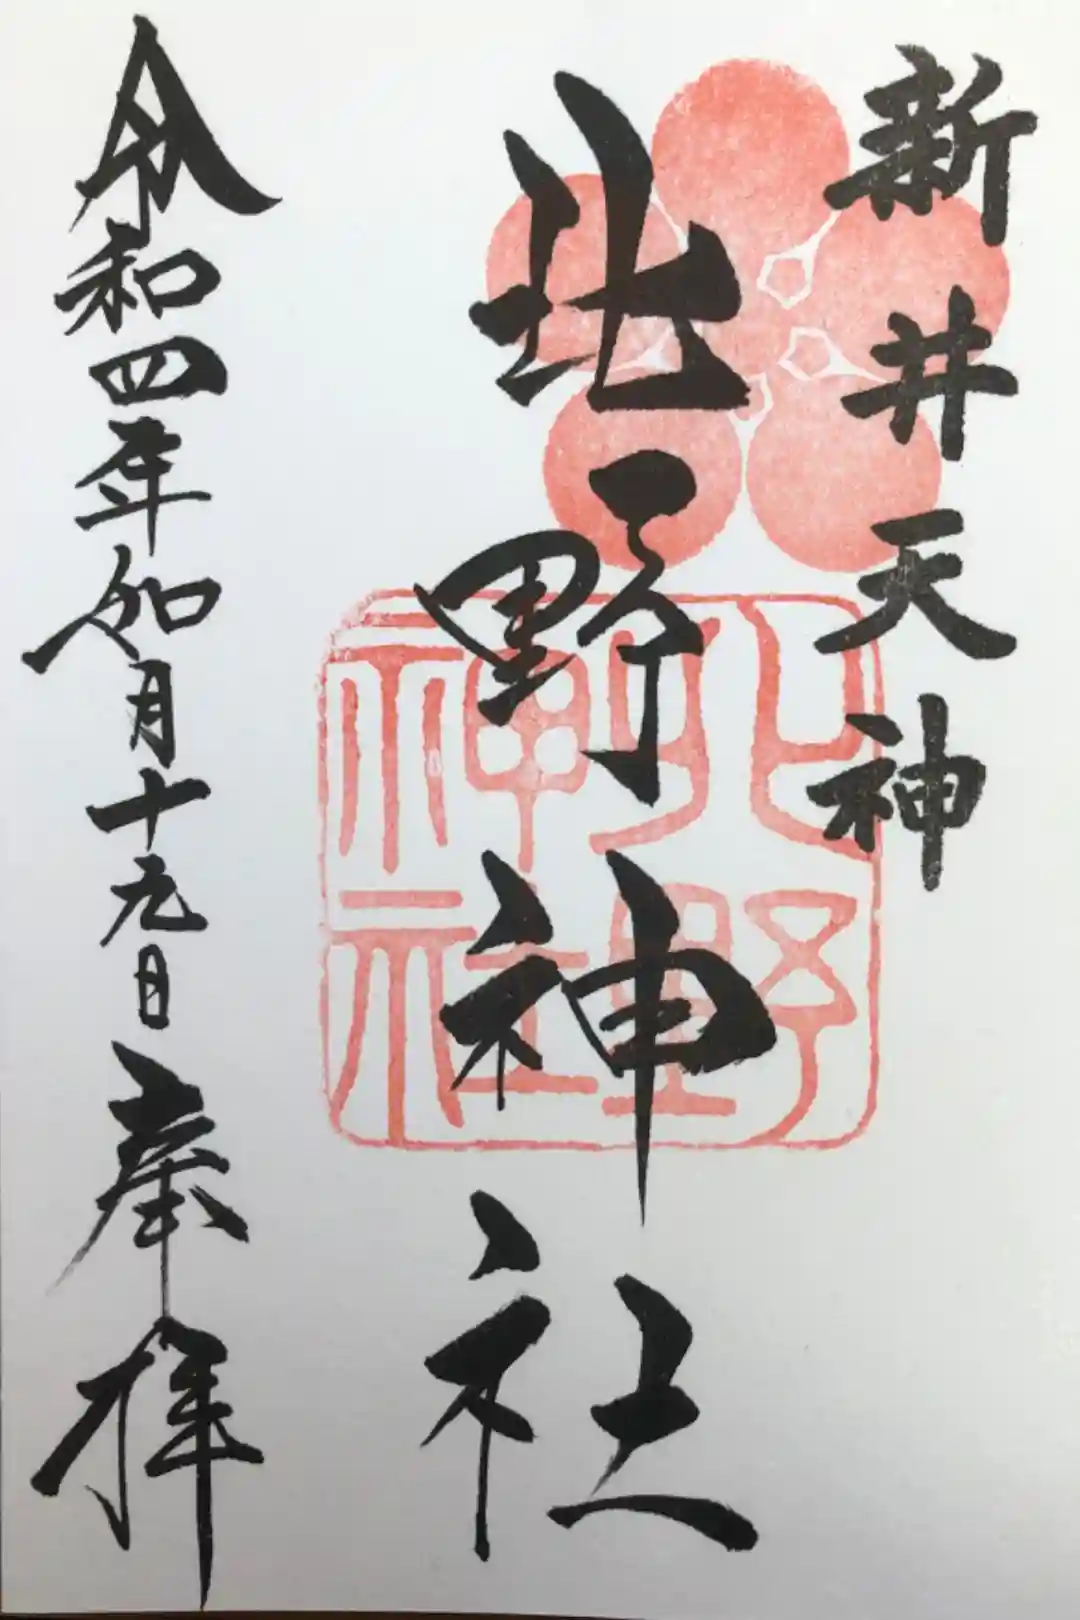 新井天神
北野神社
令和四年如月十九日奉拝
北野
神社